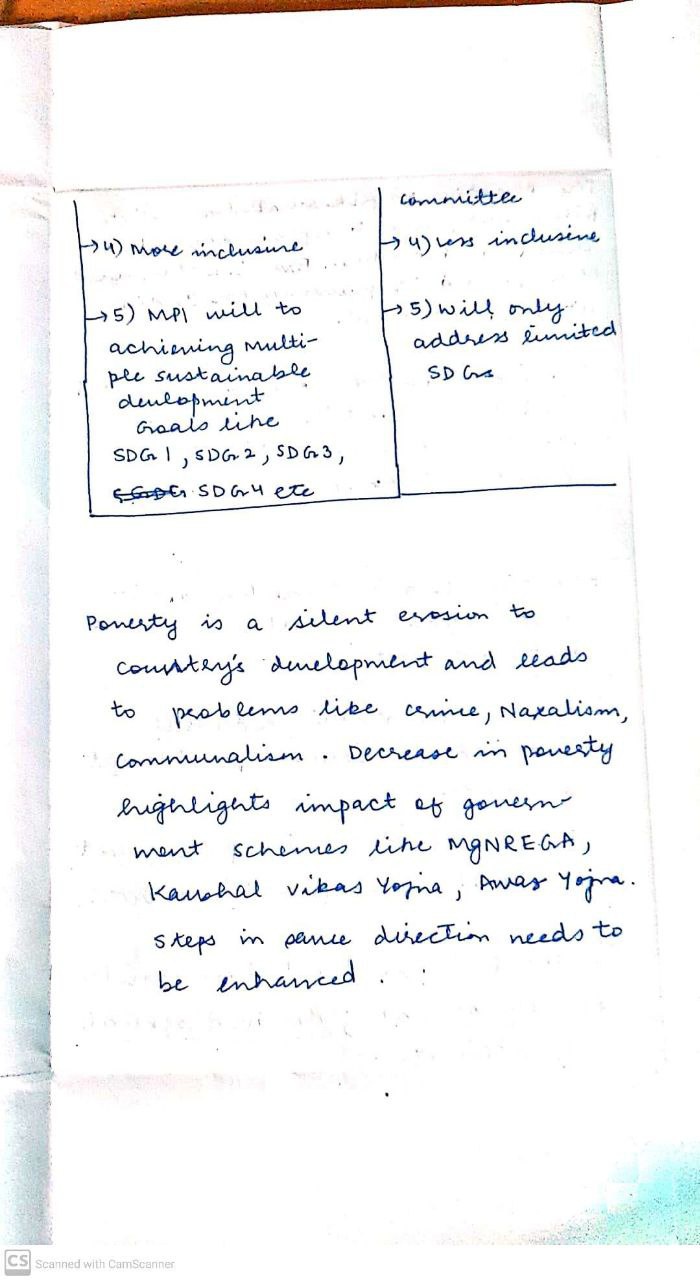 → 4) More inclusive
→ 5) MPI will to
achieving multi-
ple sustainable
development
Goals like
SDG 1, SDG 2, SDG 3,
SDG 4 etc
committee
→ 4) Less inclusive
→ 5) will only
address limited
SDGs
Poverty is a silent erosion to
country's development and leads
to problems like crime, Naxalism,
Communalism. Decrease in poverty
highlights impact of govern-
ment schemes like MgNREGA,
Kaushal Vikas Yojna, Awas Yojna.
steps in same direction needs to
be enhanced.
CS Scanned with CamScanner